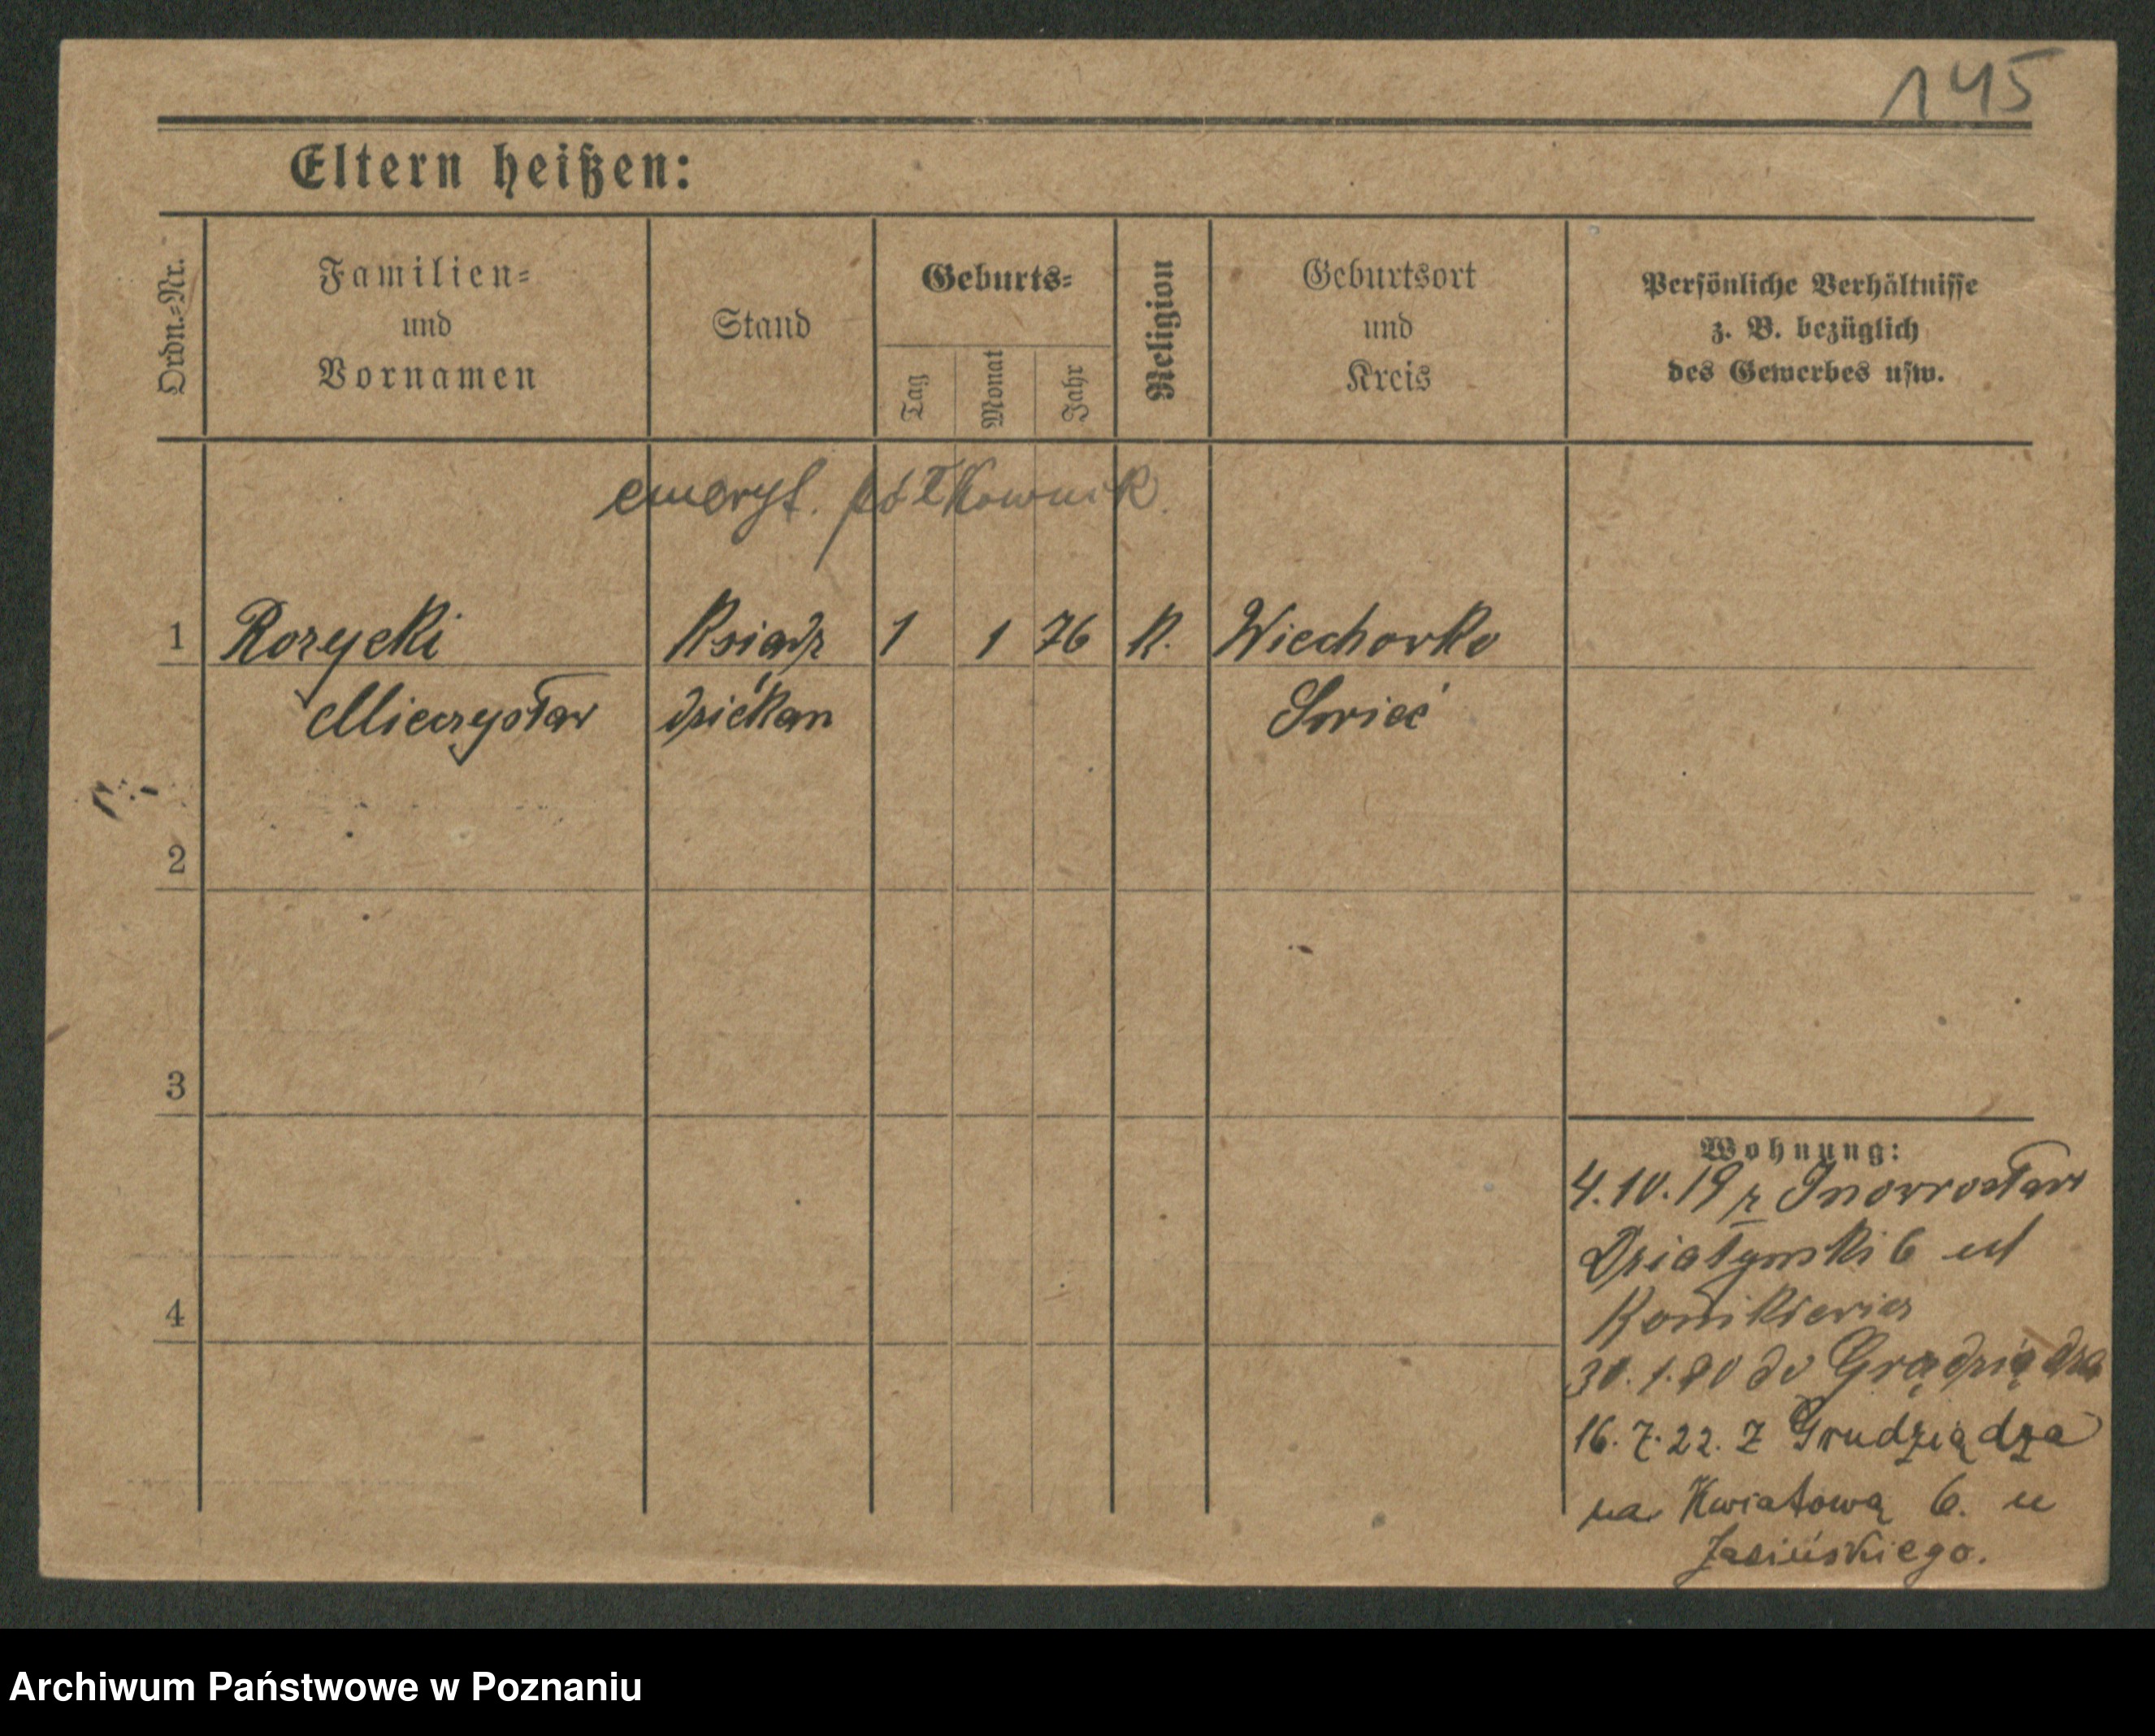 145
Eltern heißen:
Ordn.-Nr.
Familien-
und
Vornamen
Stand
Geburts-
Tag
Monat
Jahr
Religion
Geburtsort
und
Kreis
Persönliche Verhältnisse
z. B. bezüglich
des Gewerbes usw.
emeryt. półkownik.
1 Rozycki Ksiądz 1 1 76 K.
Mieczysław dziekan
2
3
4
Wohnung:
4.10.19 z Inowrocław
6 ul
30.1.20 do Grądziądza
16.7.22. Z Grudziądza
na Kwiatową 6. u
Jasińskiego.
Archiwum Państwowe w Poznaniu